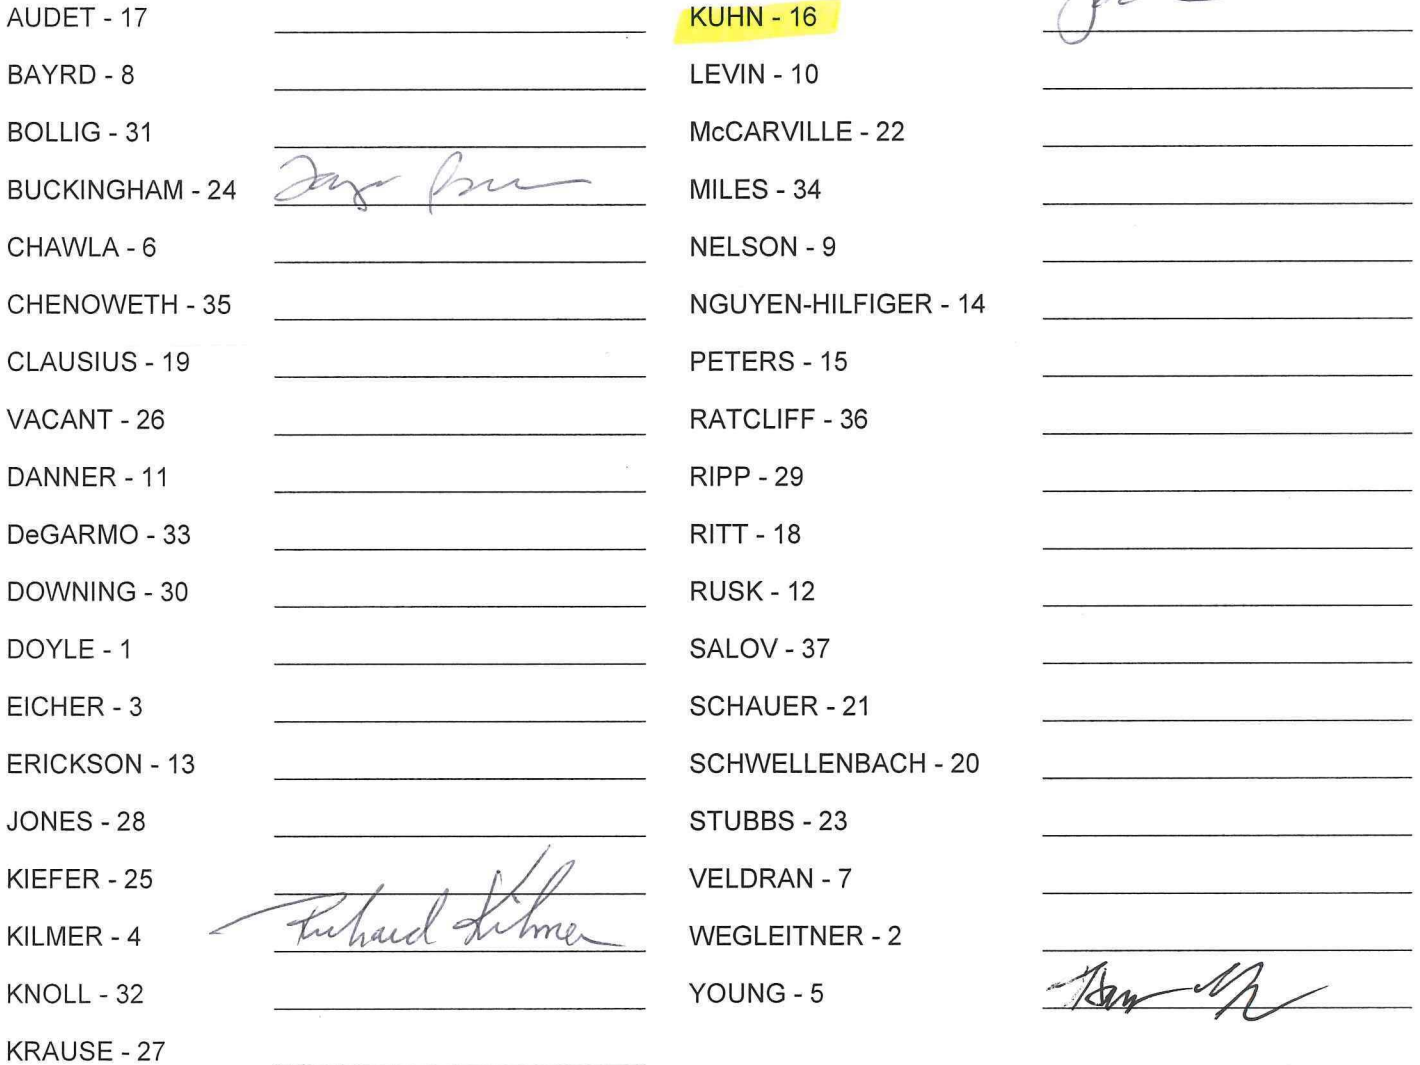 AUDET - 17
BAYRD - 8
BOLLIG - 31
BUCKINGHAM - 24
CHAWLA - 6
CHENOWETH - 35
CLAUSIUS - 19
VACANT - 26
DANNER - 11
DeGARMO - 33
DOWNING - 30
DOYLE - 1
EICHER - 3
ERICKSON - 13
JONES - 28
KIEFER - 25
KILMER - 4 Richard Kilmer
KNOLL - 32
KRAUSE - 27
KUHN - 16
LEVIN - 10
McCARVILLE - 22
MILES - 34
NELSON - 9
NGUYEN-HILFIGER - 14
PETERS - 15
RATCLIFF - 36
RIPP - 29
RITT - 18
RUSK - 12
SALOV - 37
SCHAUER - 21
SCHWELLENBACH - 20
STUBBS - 23
VELDRAN - 7
WEGLEITNER - 2
YOUNG - 5